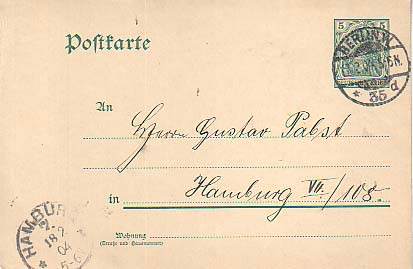 5 5
Postkarte
BERLIN, W.
35 d
An
Herrn Gustav Pabst
in Hamburg VII./108.
Wohnung
(Straße und Hausnummer)
HAMBUR
2.
18 2
04
5-6